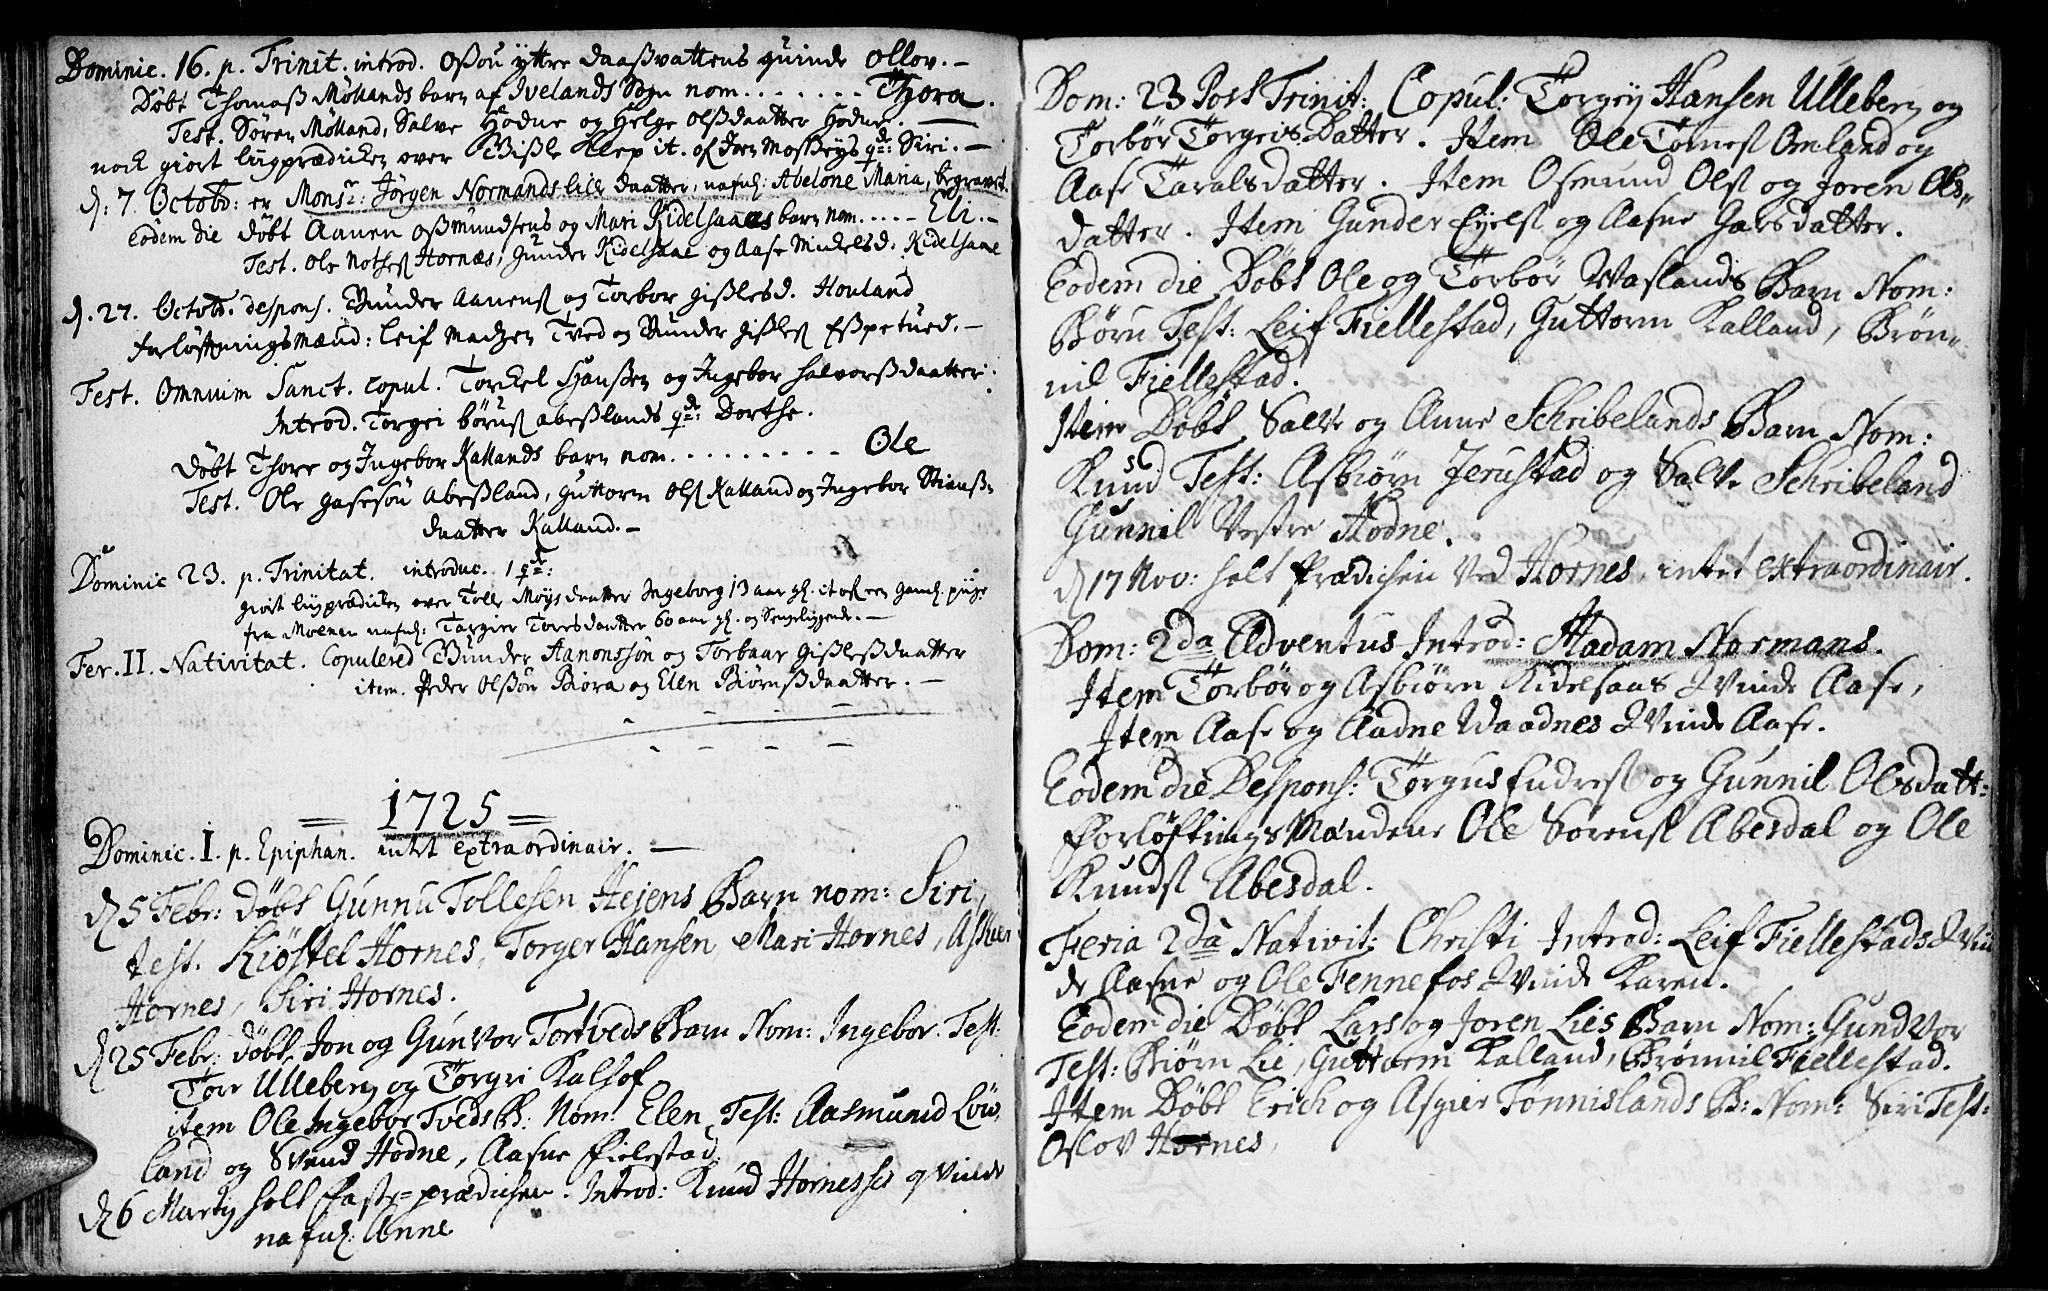 Dominic. 16. p. Trinit. introd. Oßou yttre daaßvattens quinde Ollov. –
Døbt Thomaß Møllands barn af Ivelands Sogn nom. . . . . . . Thora.
Test. Søren Mølland, Salve Hodne og Helge Olßdaatter Hodne. –
nock giort liigprædicken over it. af Siri. –
d. 7 Octobr: er Monsr: Jørgen Normands lille daatter, nafnl: Abelone Maria, begravet.
Eodem die døbt Aanen Oßmundsens og Mari Kidelsaaes barn nom. . . . . Eli. –
Test. Ole Hornæs, Gunder Kidelsaae og Aase Mickelsd. Kidelsaae
d. 27. Octobr. despons. Gunder Aanenß og Torbor Gißlesd. Houland
forløftningsmænd: Leif Madzen Tved og Gunder Gißleß Eßpetued. –
Fest. Omnium Sanct. copul. Torkel Hanßen og Ingebor halvorßdaatter.
Introd. Torgei abeßlands qde: Dorthe.
Døbt Thore og Ingebor Kallands barn nom. . . . . . . . . Ole
Test. Ole Abeßland, Guttorm Olß Kalland og Ingebor Stianß-
daatter Kalland. –
Dominic 23. p. Trinitat. introduc. 1 qde:
giort liigprædicken over Tolle Moÿs daatter Ingeborg 13 aar gl. it. af een gaml. pige
fra Moenen nafnl: Targier Toresdaatter 60 aar gl. og Sengeliggende. –
Fer. II. Nativitat. Copulered Gunder Aanonssøn og Torbaar Gißleßdaatter
item. Peder Olßøn Biora og Elen Biørnßdaatter. –
= 1725 =
Dominic. I. p. Epiphan. intet extraordinair. –
d 5 Febr: døbt Gunnu Tollesen Hejens Barn nom: Siri,
Test. Kiøstel Hornes, Torger Hansen, Mari Hornes,
Hornes, Siri Hornes.
d 25 Febr: døbt Jon og Gunvor Tortveds Barn Nom: Ingebor. Test.
Tore Ulleberg og Torgri Kalhof
item Ole Ingebor Tveds B: Nom: Elen, Test: Aasmund Løv
land og Svend Hodne, Aasne Fielestad.
d 6 Marty holt Faste-prædichen. Introd: Knud Hornesses qvinde
nafnl: Anne
Dom: 23 Post Trinit: Copul: Torgey Hansen Ulleberg og
Torbør Torgeis Datter. Item Ole Tomeß Omland og
Aase Taralsdatter. Item Osmund Olß og Joren Ols-
datter. Item Gunder Eyelß og Aasne Garsdatter.
Eodem die Døbt Ole og Torbør Vaslands Barn Nom:
Børu Test: Leif Fiellestad, Guttorm Kalland, Brøn-
nil Fiellestad.
Item Døbt Salve og Anne Schribelands Barn Nom:
Knud Test: Asbiørn Jerustad og Salve Schribeland
Gunnil Vestre Hodne.
d 17 Nov: holt Prædichen Ved Hornes, intet extraordinair.
Dom: 2da Adventus Introd: Madam Normans.
Item Torbør og Asbiørn Kidelsaas Qvinde Aase,
Item Aase og Aadne Vaadnes Qvinde Aase.
Eodem die Despons: Torgus Endreß og Gunnil Olsdatt:
Forløftings Mændene Ole Sørenß Abesdal og Ole
Knudß Abesdal.
Feria 2da Nativit: Christi Introd: Leif Fiellestads Qvin
de Aasne og Ole Fennefos Qvinde Karen.
Eodem die Døbt Lars og Joren Lies Barn Nom: Gundvor
Test: Biørn Lie, Guttorm Kalland, Brønnil Fiellestad.
Item Døbt Erich og Asgier Tønnislands B: Nom: Siri Test:
Oslov Hornes,